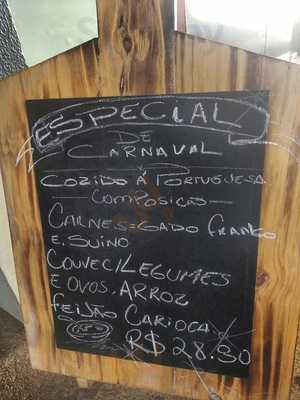 ESPECIAL
DE
CARNAVAL
COZIDO Á PORTUGUESA
COMPOSICAO
CARNES=GADO FRANGO
E. SUINO
COUVE C/LEGUMES
E OVOS. ARROZ
FEIJÃO CARIOCA
R$ 28.90